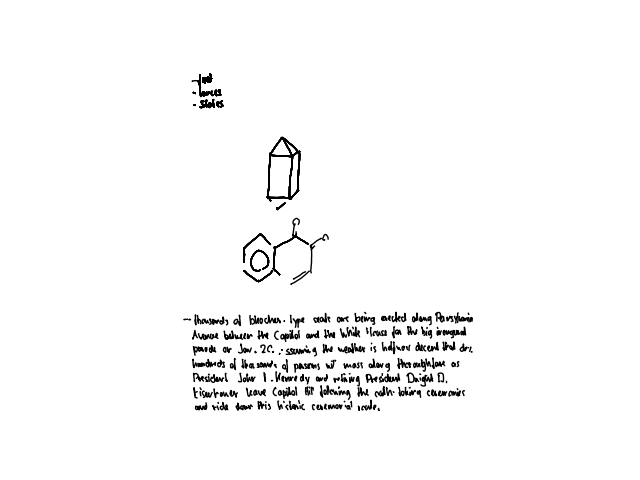 - forces
- States
- thousands of bleacher-type seats are being erected along Pennsylvania
Avenue between the Capitol and the White House for the big inaugural
parade on Jan. 20. Assuming the weather is halfway decent that day,
hundreds of thousands of persons will mass along thoroughfare as
President John F. Kennedy and retiring President Dwight D.
Eisenhower leave Capitol Hill following the oath-taking ceremonies
and ride down this historic ceremonial route.